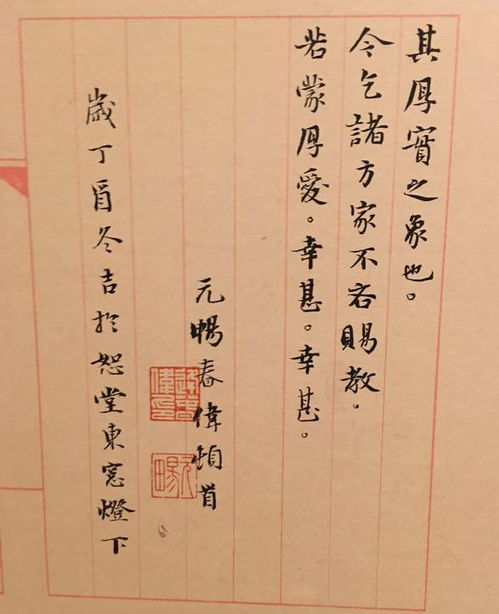 其厚實之象也。
今乞諸方家不吝賜教。
若蒙厚愛。幸甚。幸甚。
元暢春偉頓首
歲丁酉冬吉於恕堂東窓燈下